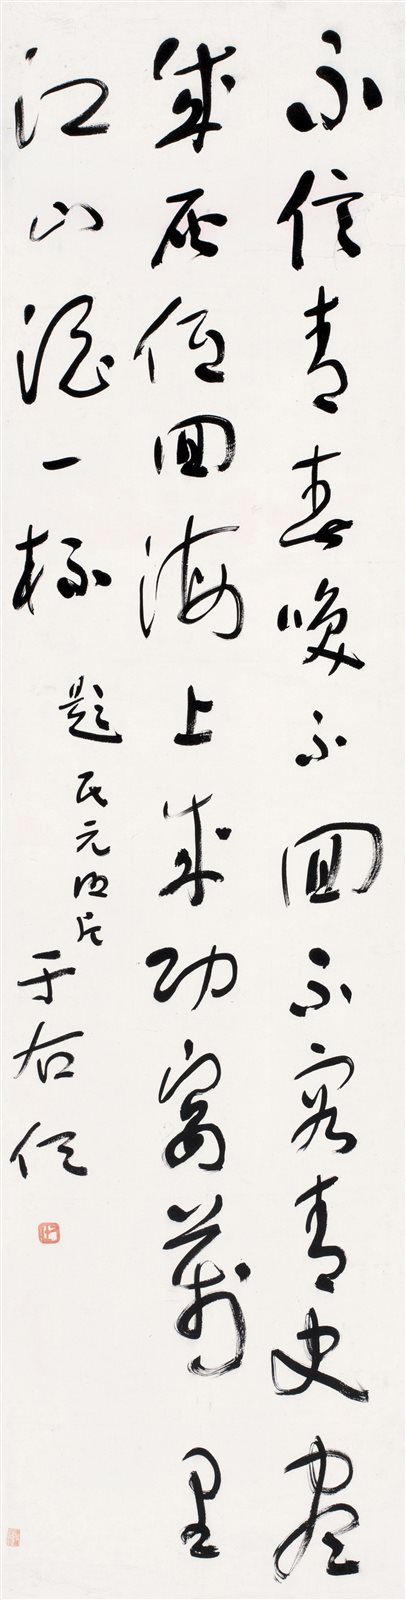 不信青春喚不回不容青史盡
成灰低回海上成功宴萬里
江山酒一杯
題民元照片
于右任